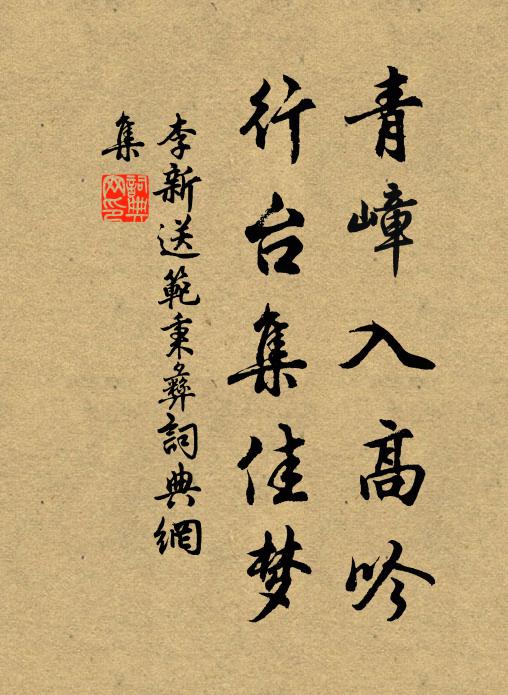 青嶂入高吟
行台集佳梦
李新送範秉彝詞典網
集
詞典網印